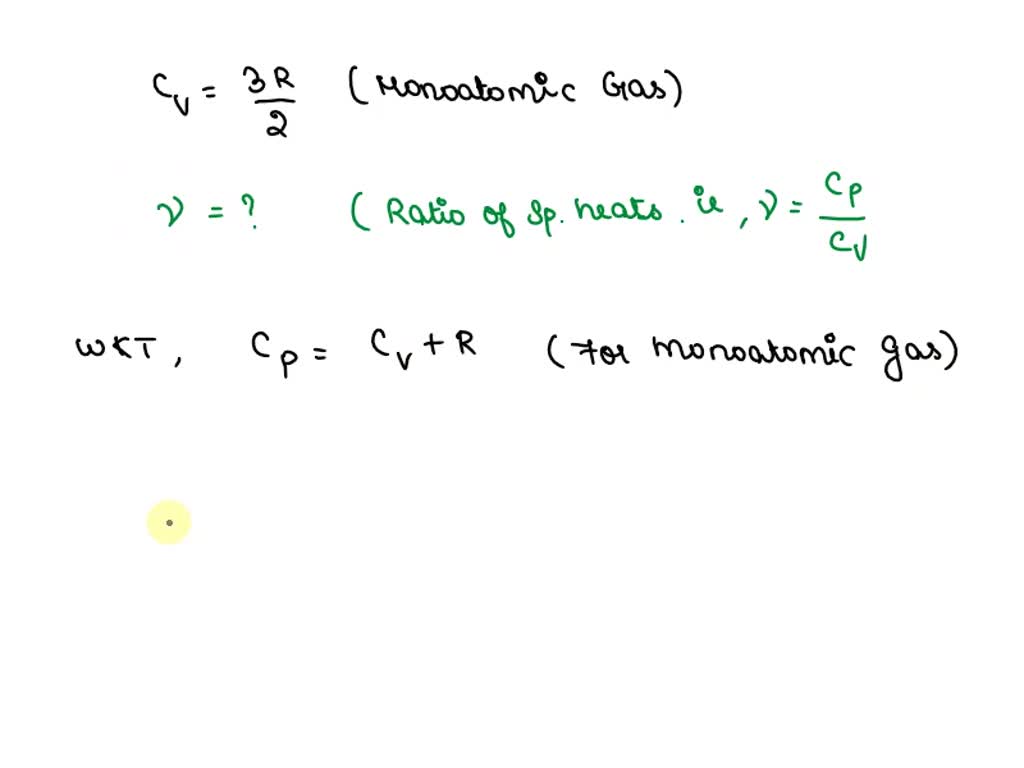 Cv = 3R/2 (Monoatomic Gas)
γ = ? (Ratio of Sp. heats. ie, γ = Cp/Cv
WKT, Cp = Cv + R (For monoatomic gas)